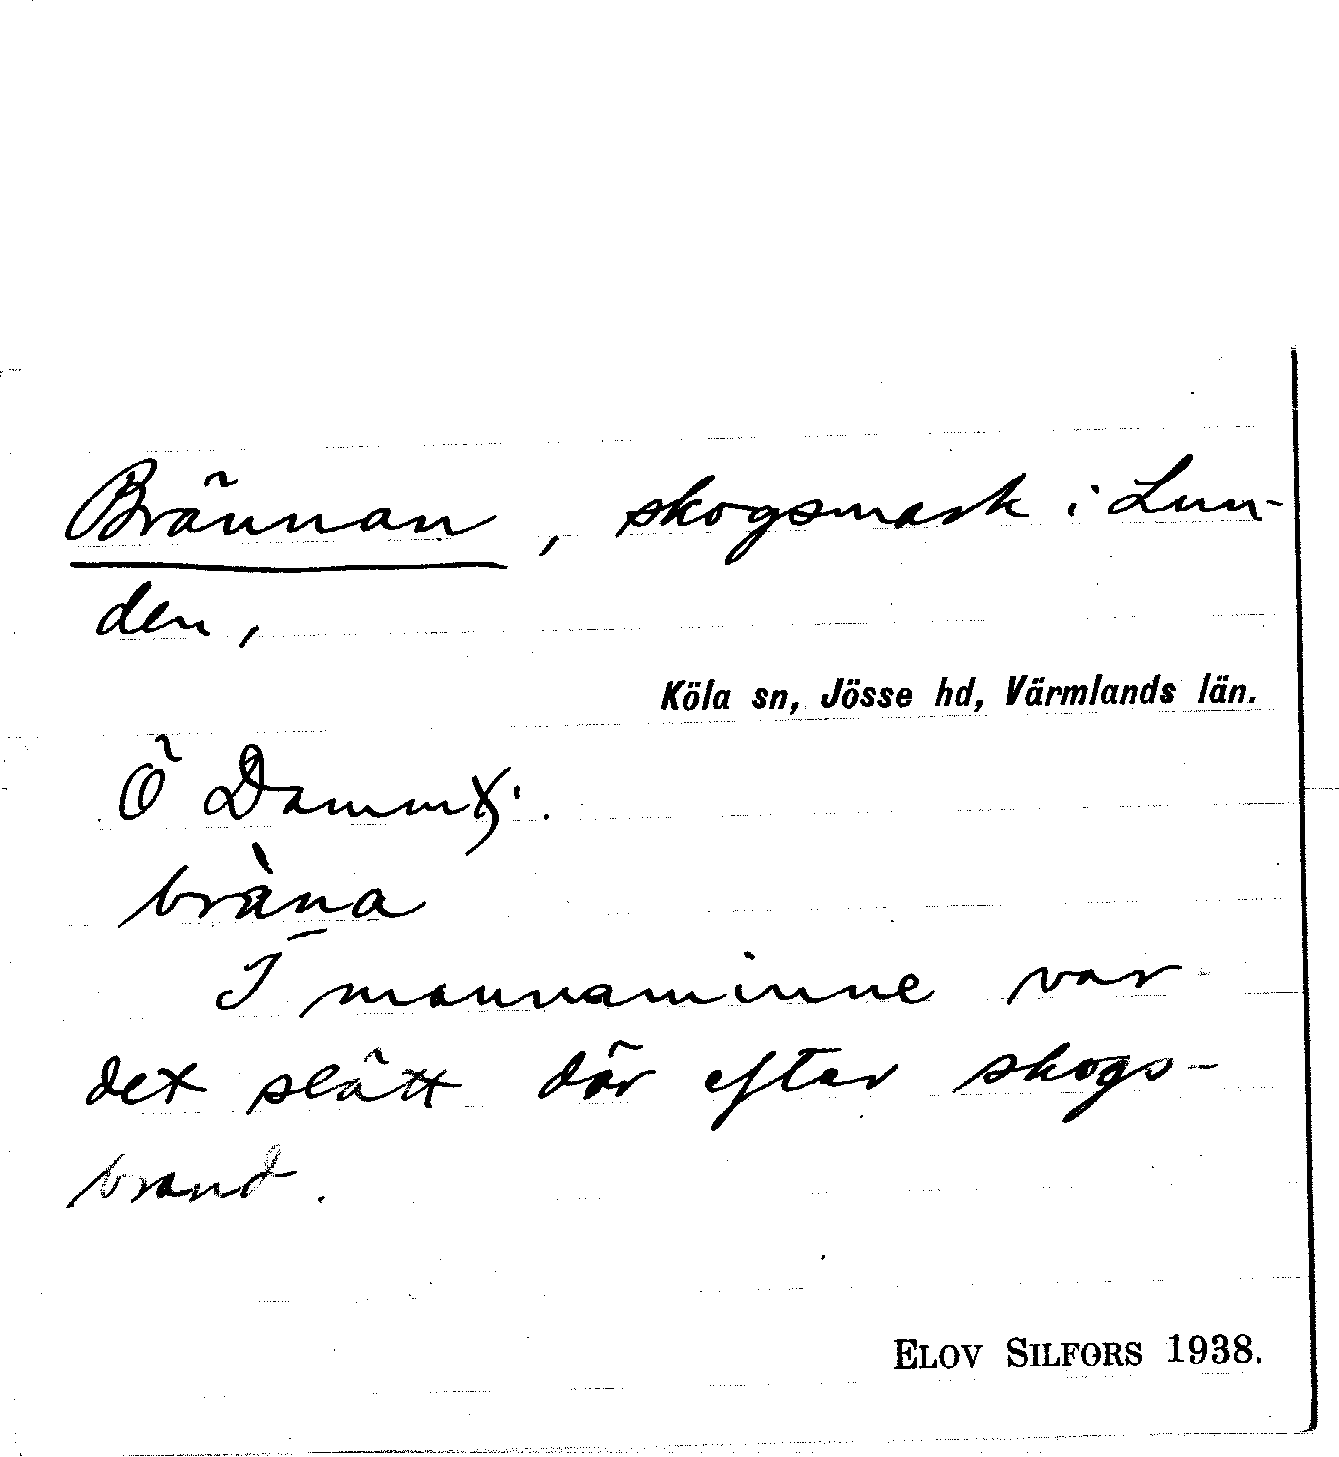 Brännan, skogsmark i Lun-
den,
Köla sn, Jösse hd, Värmlands län.
Ö
bräna
I mannaminne var
det slätt där efter skogs-
brand.
ELOV SILFORS 1938.